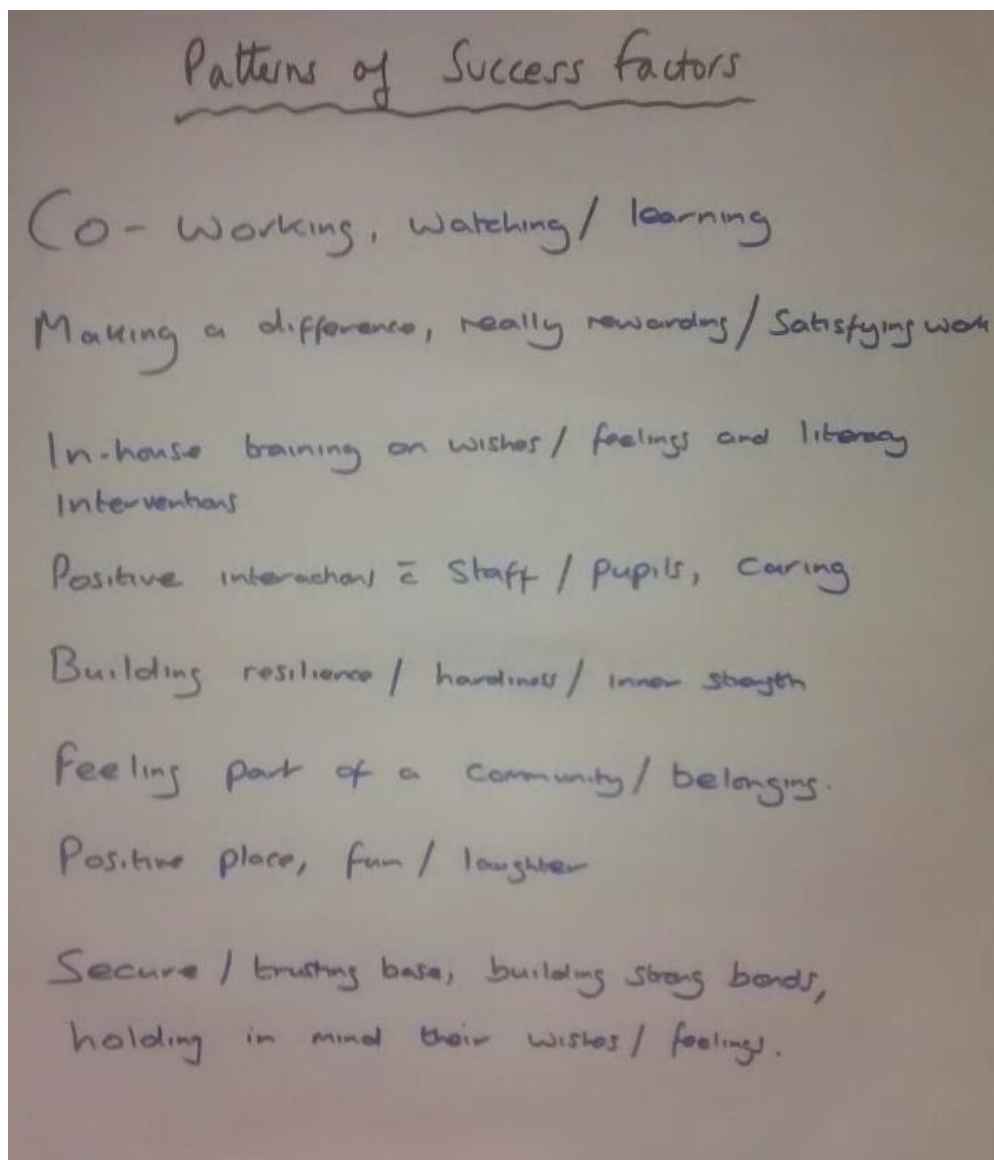 Patterns of Success factors
Co-working, watching/ learning
Making a difference, really rewarding/ Satisfying work
In-house training on wishes/ feelings and literacy
Interventions
Positive interactions c̄ Staff / pupils, caring
Building resilience/ hardiness/ inner strength
Feeling part of a community/ belonging.
Positive place, fun/ laughter
Secure/ trusting base, building strong bonds,
holding in mind their wishes/ feelings.